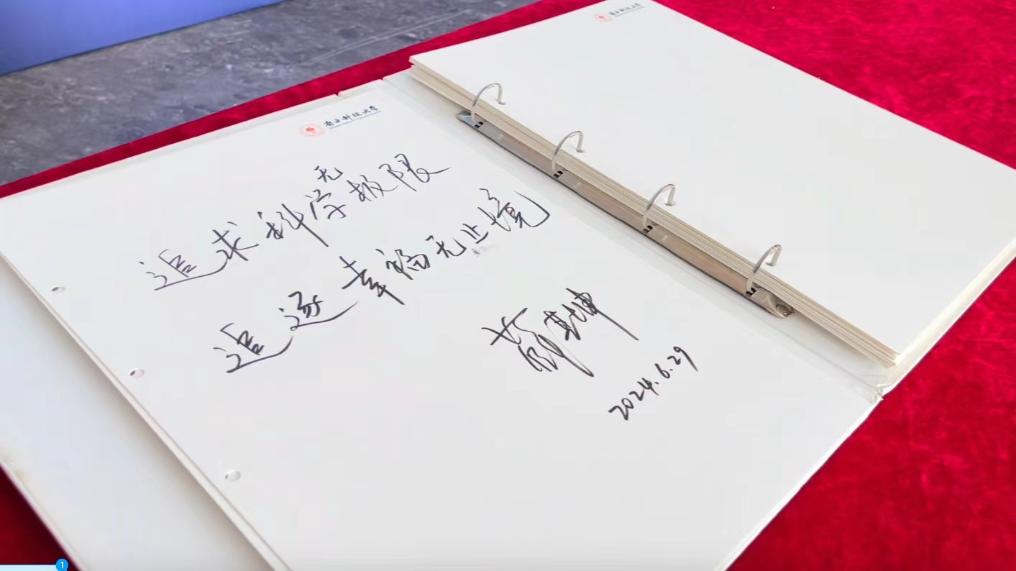 南方科技大学
追求科学无极限
追逐幸福无止境
薛其坤
2024.6.29
南方科技大学
1